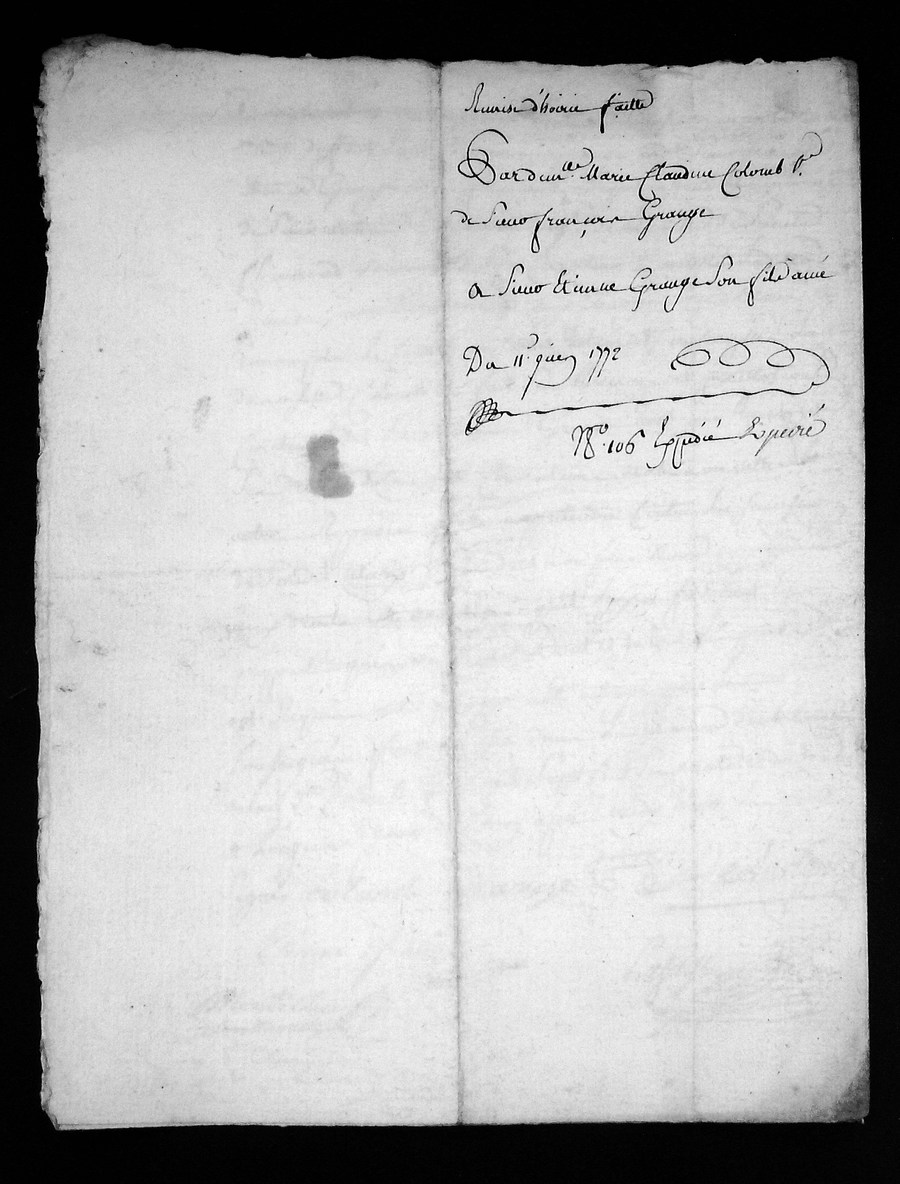 Remise d'hoirie faitte
Par dem.lle Marie Claudine Colomb v.e
de Sieur françois Grange
a Sieur Etienne Grange Son fils ainé
Du 11.e 1772
N.o 106 Expedié Expedié